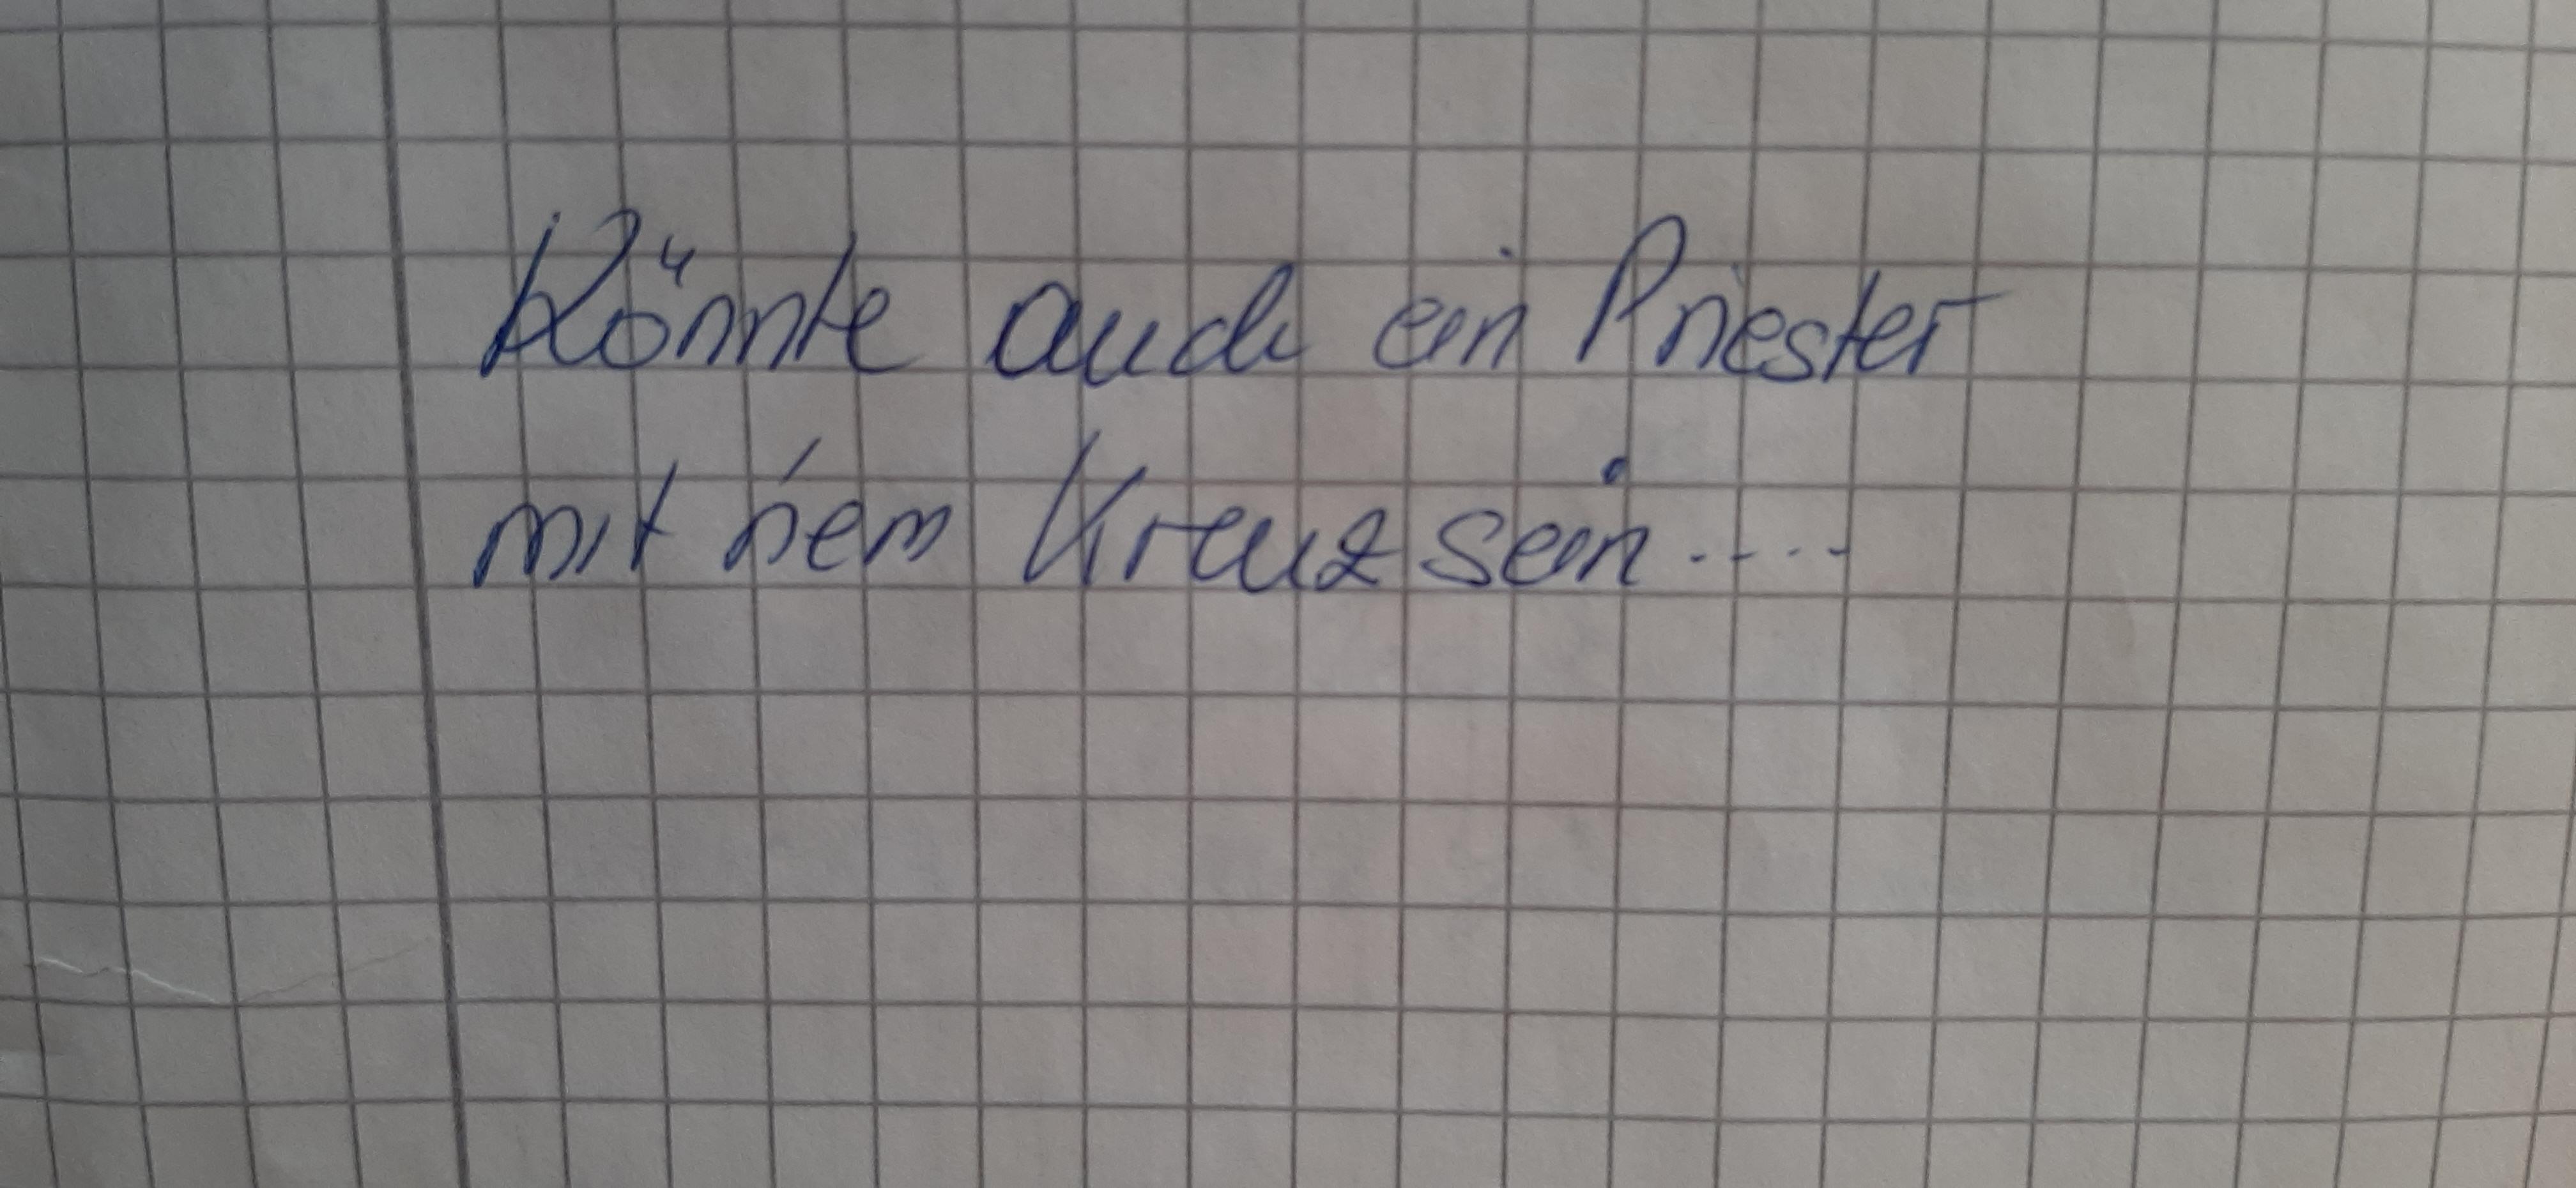 Könnte auch ein Priester
mit 'nem Kreuz sein....